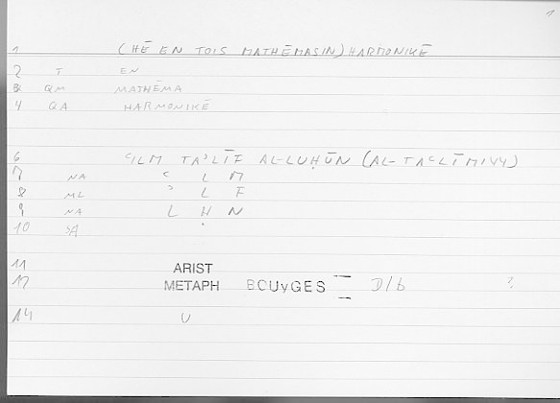 1
1 (HĒ EN TOIS MATHĒMASIN) HARMONIKĒ
2 T EN
3 QM MATHĒMA
4 QA HARMONIKĒ
6 ʿILM TAʾLĪF AL-LUḤŪN (AL-TAʿLĪMIYY)
7 NA ʿ L M
8 ML ʾ L F
9 NA L Ḥ N
10 ӡA
11 ARIST
12 METAPH BOUYGES — D/b ?
14 U